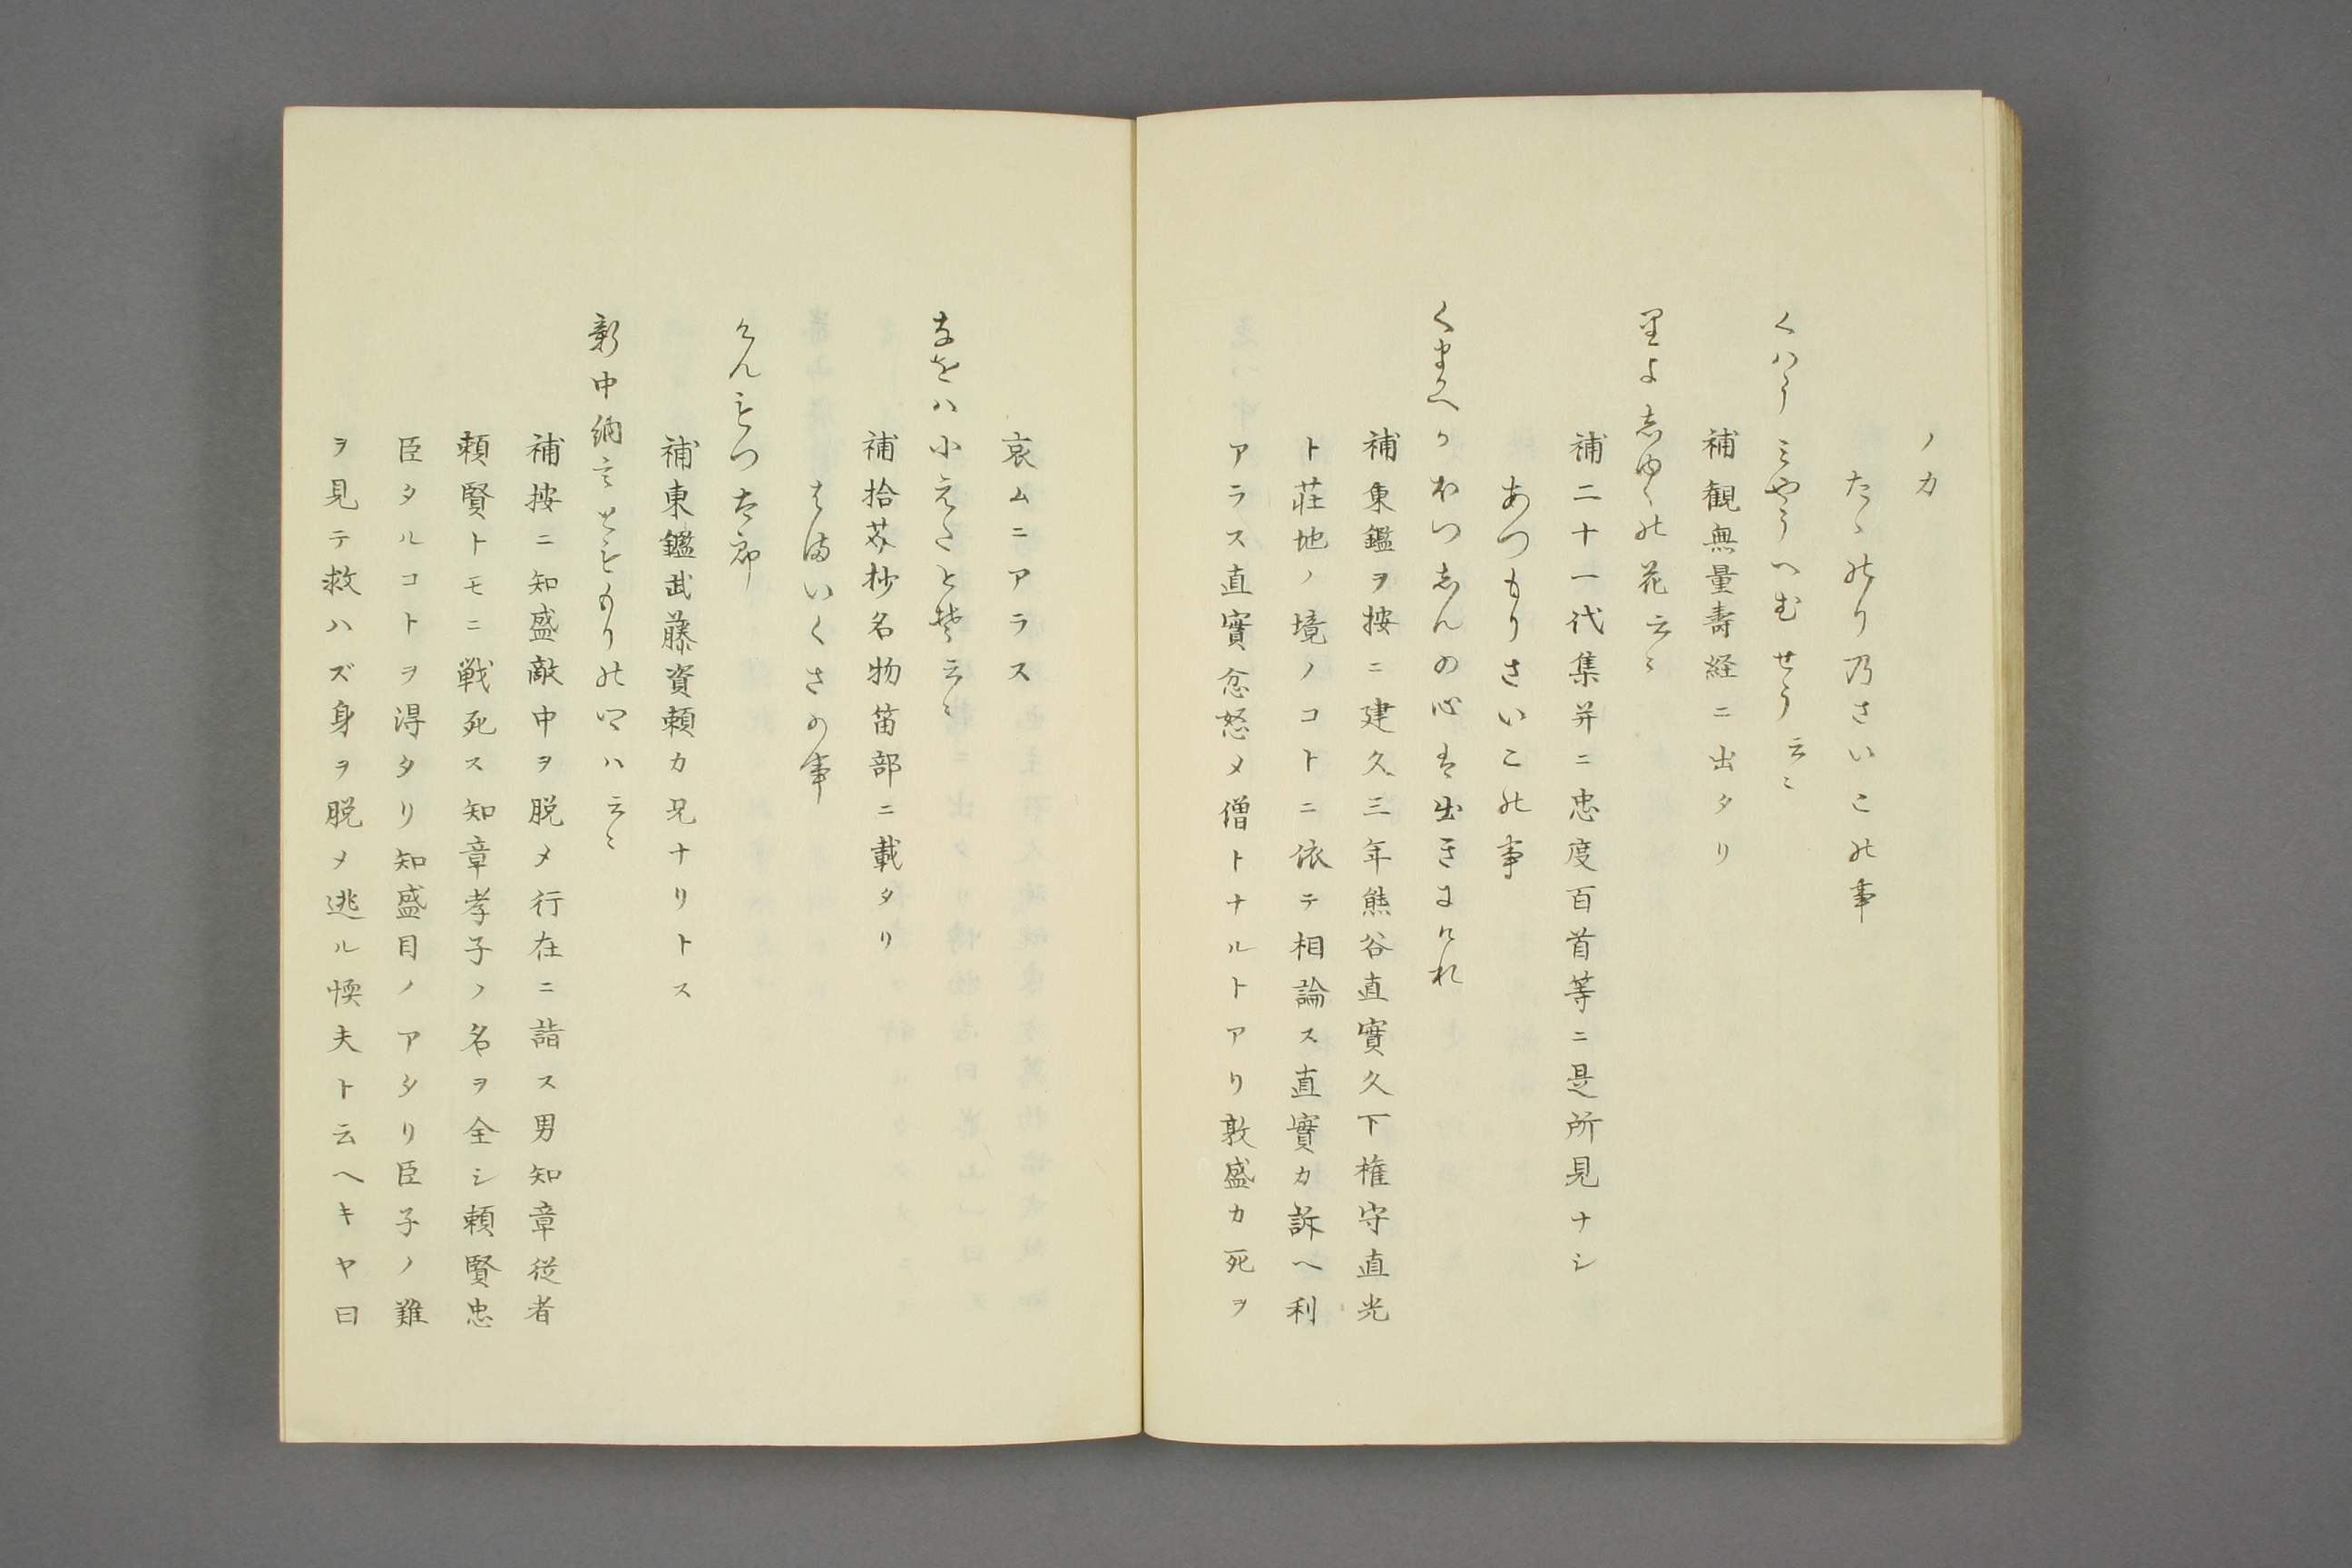 ノカ
たゝのり乃さいこの事
くハうミやうへむせう云ミ
補観無量壽経ニ出タリ
里よしゆくの花云ミ
補二十一代集并ニ忠度百首等ニ是所見ナシ
あつもりさいこの事
くまかへかほつしんの心は出きにけれ
補東鑑ヲ按ニ建久三年熊谷直實久下権守直光
ト荘地ノ境ノコトニ依テ相論ス直實カ訴ヘ利
アラス直實忿怒メ僧トナルトアリ敦盛カ死ヲ
哀ムニアラス
なをハ小えたとそ云ミ
補拾芥抄名物笛部ニ載タリ
はまいくさの事
けんもつ太郎
補東鑑武藤資頼カ兄ナリトス
新中納言とももりのいハ云ミ
補按ニ知盛敵中ヲ脱メ行在ニ詣ス男知章従者
頼賢トモニ戦死ス知章孝子ノ名ヲ全シ頼賢忠
臣タルコトヲ得タリ知盛目ノアタリ臣子ノ難
ヲ見テ救ハズ身ヲ脱メ逃ル愞夫ト云ヘキヤ曰